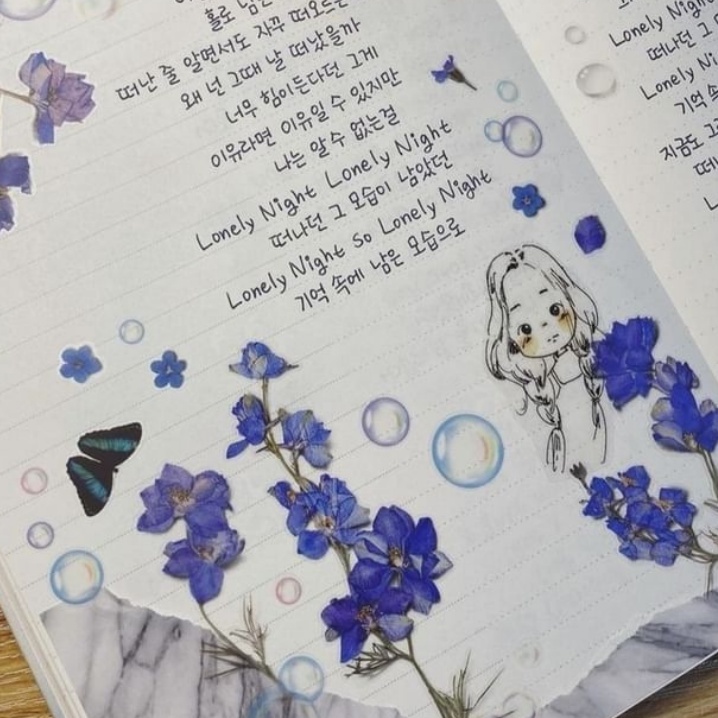 홀로 남은
떠난 줄 알면서도 자꾸 떠오르는
왜 넌 그때 날 떠났을까
너무 힘이든다던 그게
이유라면 이유일 수 있지만
나는 알 수 없는걸
Lonely Night Lonely Night
떠나던 그 모습이 남았던
Lonely Night So Lonely Night
기억 속에 남은 모습으로
Lonely Night
떠나던 그
Lonely N
기억 속
지금도 그